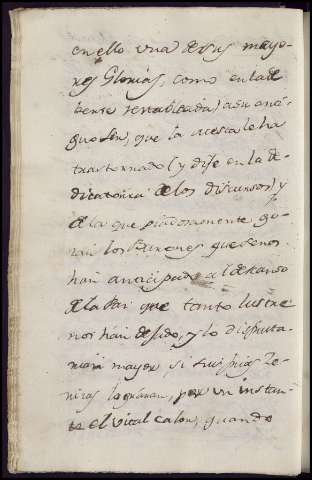 en ello una de sus mayo-
res Glorias, como en la de
verse restablecida) a su anti-
guo ser, que la acecta le ha
trastornado (y dije en la de-
dicatoria de los discursos) y
de la que piadosamente go-
zan los Varones que se nos
han anticipado al descanso
de la Paz que tanto lustre
nos han dejado, y lo disfruta-
rian mayor si sus frias Ze-
nizas lograran, por un instan-
te el vital calor, quando